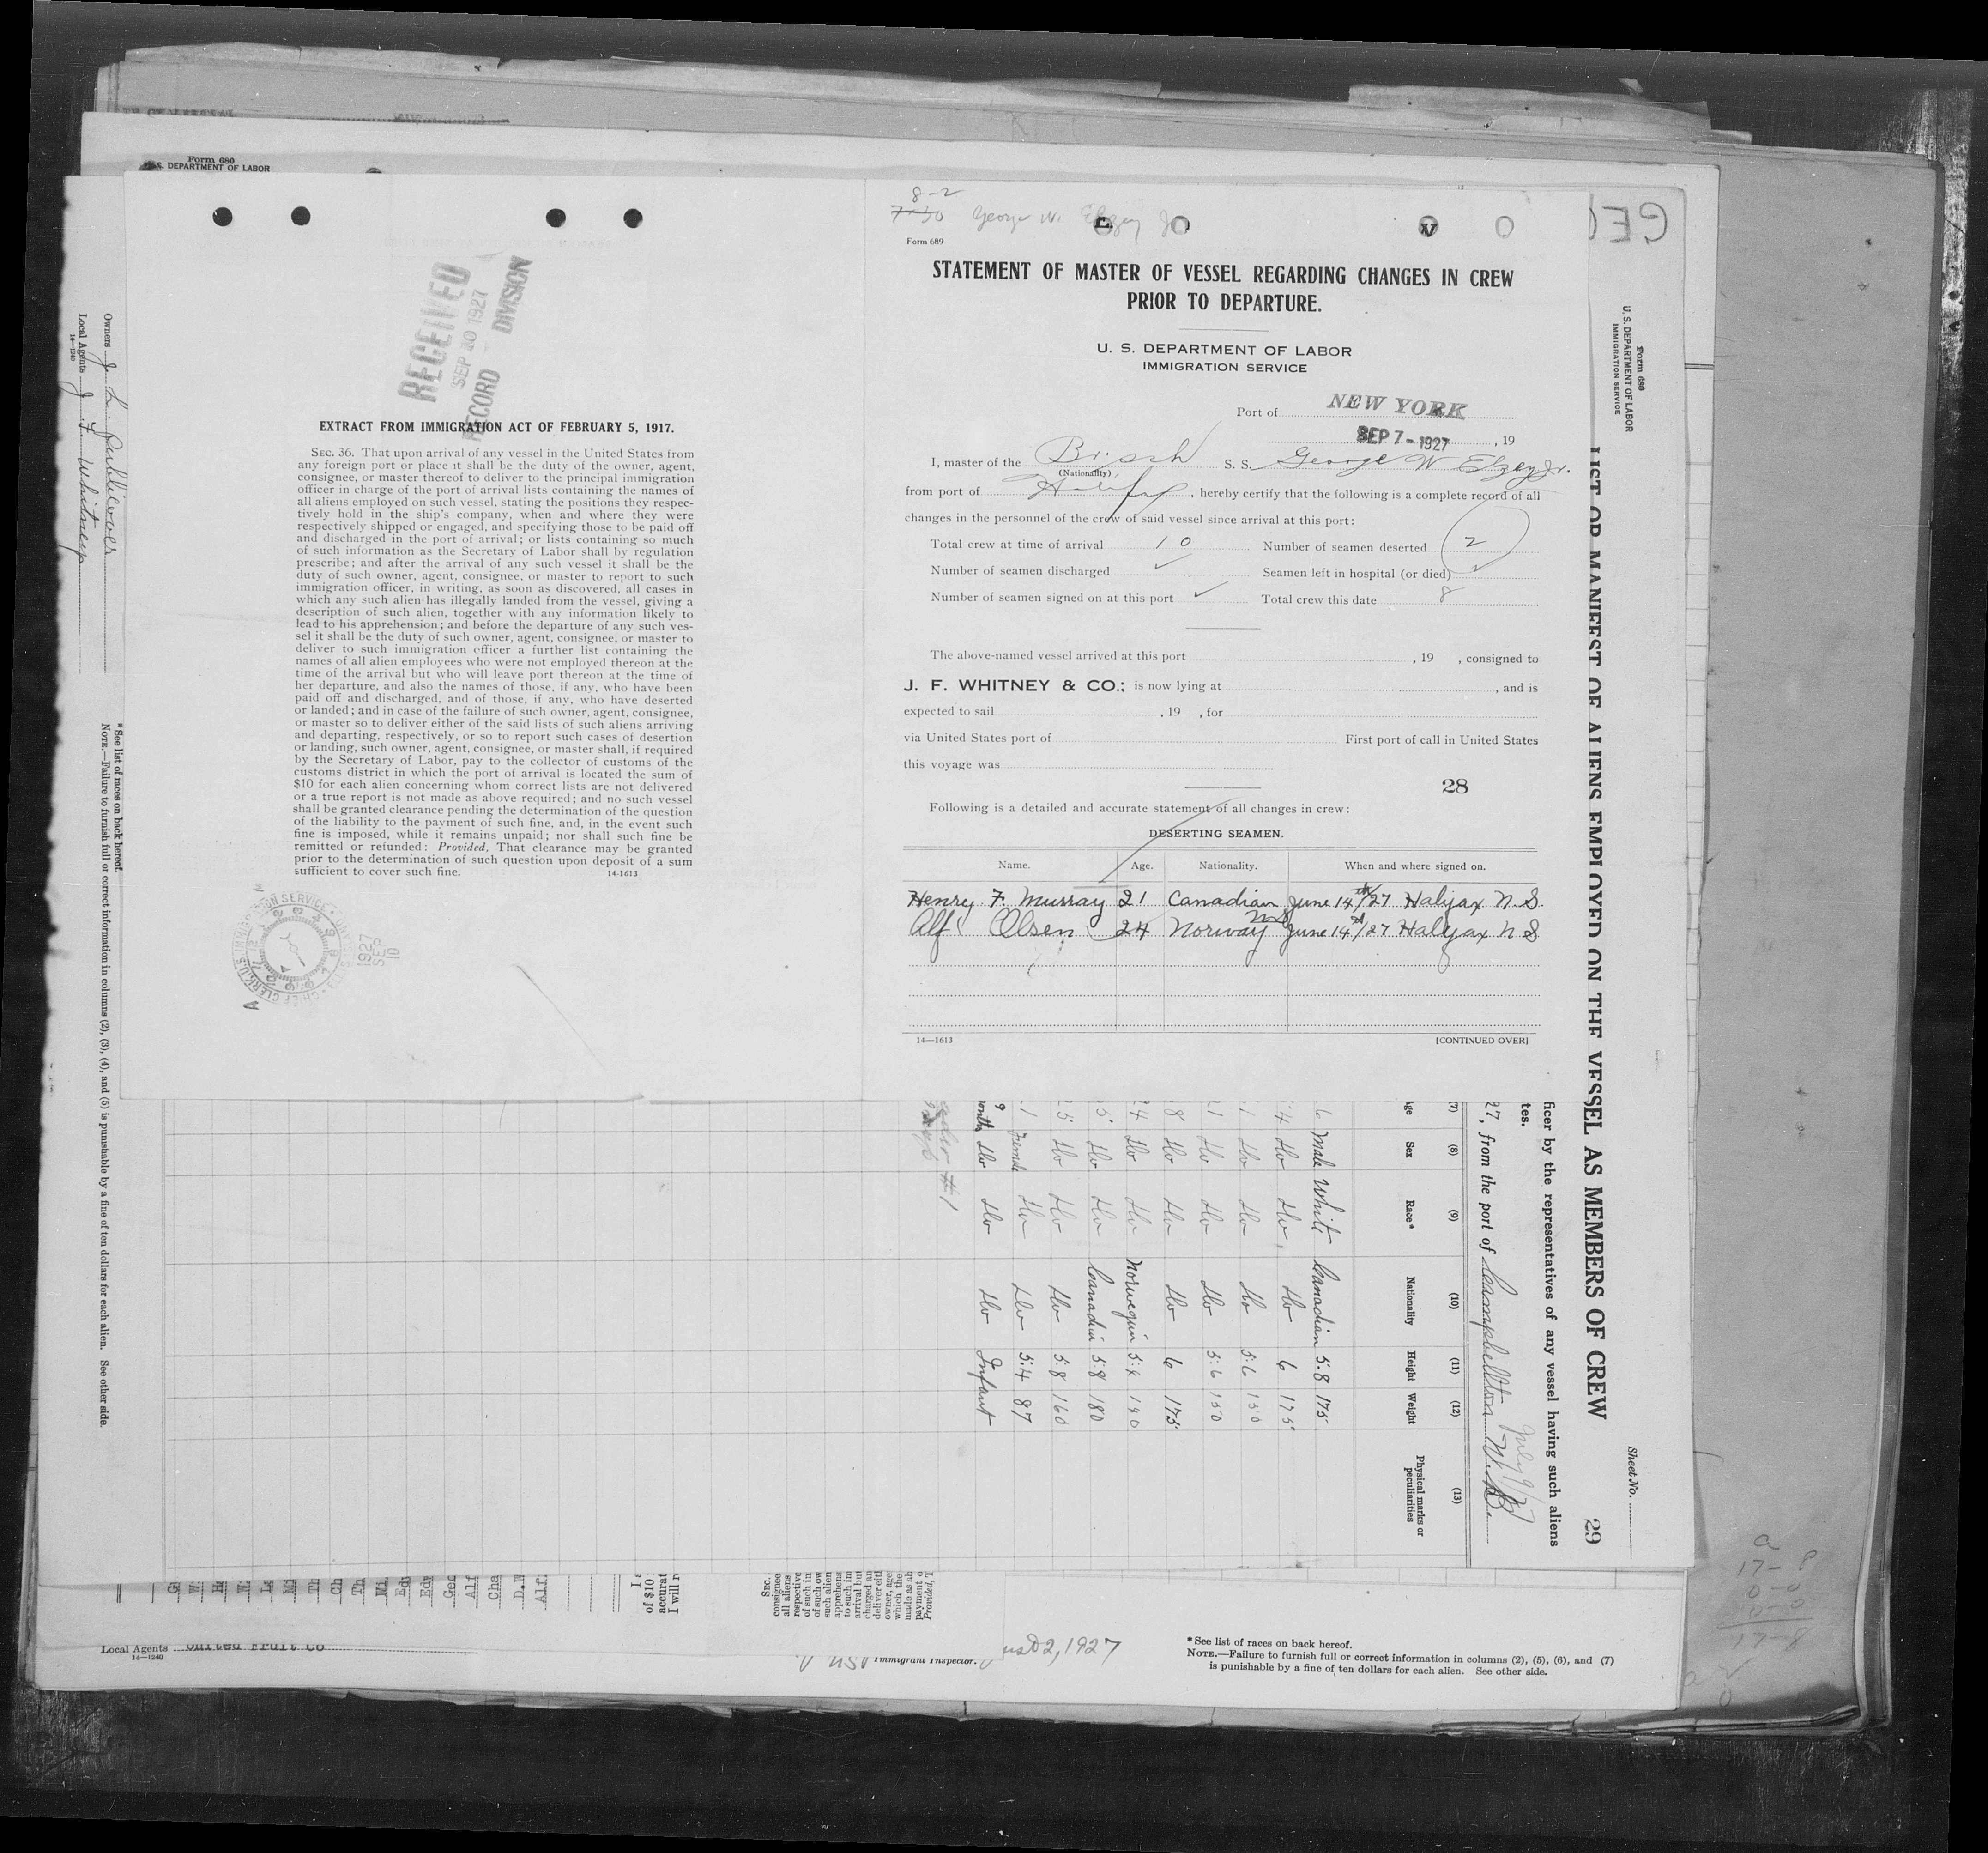 Form 680
U.S. DEPARTMENT OF LABOR
Owners
Local Agents J. F. Whitney
14—1240
*See list of races on back hereof.
NOTE.—Failure to furnish full or correct information in columns (2), (3), (4), and (5) is punishable by a fine of ten dollars for each alien. See other side.
RECEIVED
SEP 10 1927
RECORD DIVISION
EXTRACT FROM IMMIGRATION ACT OF FEBRUARY 5, 1917.
SEC. 36. That upon arrival of any vessel in the United States from
any foreign port or place it shall be the duty of the owner, agent,
consignee, or master thereof to deliver to the principal immigration
officer in charge of the port of arrival lists containing the names of
all aliens employed on such vessel, stating the positions they respec-
tively hold in the ship's company, when and where they were
respectively shipped or engaged, and specifying those to be paid off
and discharged in the port of arrival; or lists containing so much
of such information as the Secretary of Labor shall by regulation
prescribe; and after the arrival of any such vessel it shall be the
duty of such owner, agent, consignee, or master to report to such
immigration officer, in writing, as soon as discovered, all cases in
which any such alien has illegally landed from the vessel, giving a
description of such alien, together with any information likely to
lead to his apprehension; and before the departure of any such ves-
sel it shall be the duty of such owner, agent, consignee, or master to
deliver to such immigration officer a further list containing the
names of all alien employees who were not employed thereon at the
time of the arrival but who will leave port thereon at the time of
her departure, and also the names of those, if any, who have been
paid off and discharged, and of those, if any, who have deserted
or landed; and in case of the failure of such owner, agent, consignee,
or master so to deliver either of the said lists of such aliens arriving
and departing, respectively, or so to report such cases of desertion
or landing, such owner, agent, consignee, or master shall, if required
by the Secretary of Labor, pay to the collector of customs of the
customs district in which the port of arrival is located the sum of
$10 for each alien concerning whom correct lists are not delivered
or a true report is not made as above required; and no such vessel
shall be granted clearance pending the determination of the question
of the liability to the payment of such fine, and, in the event such
fine is imposed, while it remains unpaid; nor shall such fine be
remitted or refunded: Provided, That clearance may be granted
prior to the determination of such question upon deposit of a sum
sufficient to cover such fine. 14-1613
1927
SEP
10
8-2
7-30 George W. Elzey Jr
Form 689
STATEMENT OF MASTER OF VESSEL REGARDING CHANGES IN CREW
PRIOR TO DEPARTURE.
U. S. DEPARTMENT OF LABOR
IMMIGRATION SERVICE
Port of NEW YORK
SEP 7 - 1927, 19
I, master of the S. S. George W Elzey Jr.
(Nationality)
from port of Halifax, hereby certify that the following is a complete record of all
changes in the personnel of the crew of said vessel since arrival at this port:
Total crew at time of arrival 10 Number of seamen deserted 2
Number of seamen discharged Seamen left in hospital (or died)
Number of seamen signed on at this port Total crew this date 8
The above-named vessel arrived at this port , 19 , consigned to
J. F. WHITNEY & CO.; is now lying at , and is
expected to sail , 19 , for
via United States port of First port of call in United States
this voyage was
28
Following is a detailed and accurate statement of all changes in crew:
DESERTING SEAMEN.
Name. Age. Nationality. When and where signed on.
Henry F. Murray 21 Canadian June 14th/27 Halifax N.S.
Alf Olsen 24 Norway June 14th/27 Halifax N S
14—1613 [CONTINUED OVER]
Form 680
U. S. DEPARTMENT OF LABOR
IMMIGRATION SERVICE
Sheet No.
LIST OR MANIFEST OF ALIENS EMPLOYED ON THE VESSEL AS MEMBERS OF CREW 29
ficer by the representatives of any vessel having such aliens
tes.
27, from the port of Campbellton N.B.
(7) (8) (9) (10) (11) (12) (13)
Age Sex Race* Nationality Height Weight Physical marks or peculiarities
6 Male White Canadian 5.8 175
4 do do do 6 175
1 do do do 5.6 150
1 do do do 5.6 150
8 do do do 6 175
24 do do Norwegian
5 do do Canadian 5.8 180
5 do do do 5.8 160
1 Female do do 5.4 87
9 months do do do Infant
I will r
of $10
accurat
Local Agents United Fruit Co
14—1240
Immigrant Inspector.
2, 1927
*See list of races on back hereof.
NOTE.—Failure to furnish full or correct information in columns (2), (5), (6), and (7)
is punishable by a fine of ten dollars for each alien. See other side.
17-8
0-0
0-0
17-8